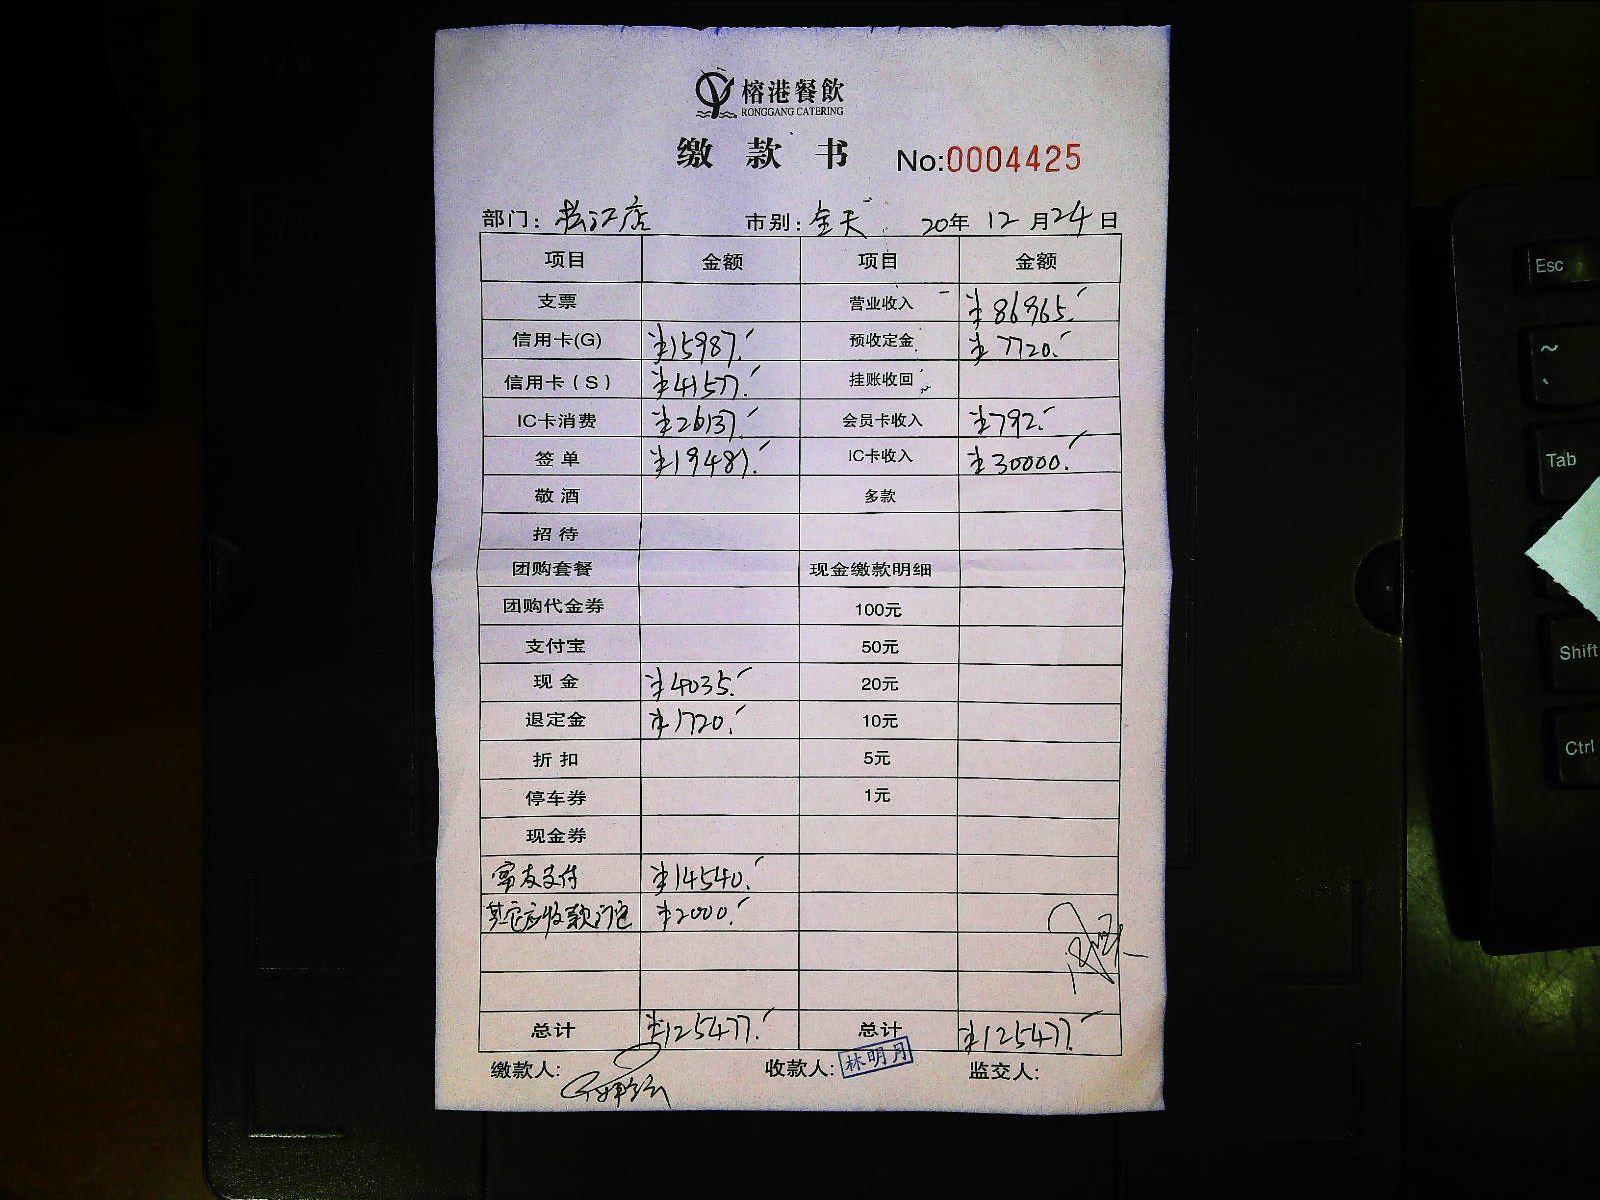 榕港餐飲
RONGGANG CATERING
缴款书 No:0004425
部门: 松江店 市别: 全天 20年 12月24日
项目 金额 项目 金额
支票 营业收入 ¥86965.
信用卡(G) ¥15987. 预收定金 ¥7720.
信用卡(S) ¥41577. 挂账收回
IC卡消费 ¥26137. 会员卡收入 ¥792.
签单 ¥19481. IC卡收入 ¥30000.
敬酒 多款
招待
团购套餐 现金缴款明细
团购代金券 100元
支付宝 50元
现金 ¥4035. 20元
退定金 ¥1720. 10元
折扣 5元
停车券 1元
现金券
富友支付 ¥14540.
其它应收款 ¥2000.
总计 ¥125477. 总计 ¥125477.
缴款人: 收款人: 林明月 监交人:
Esc
~
Tab
Shift
Ctrl